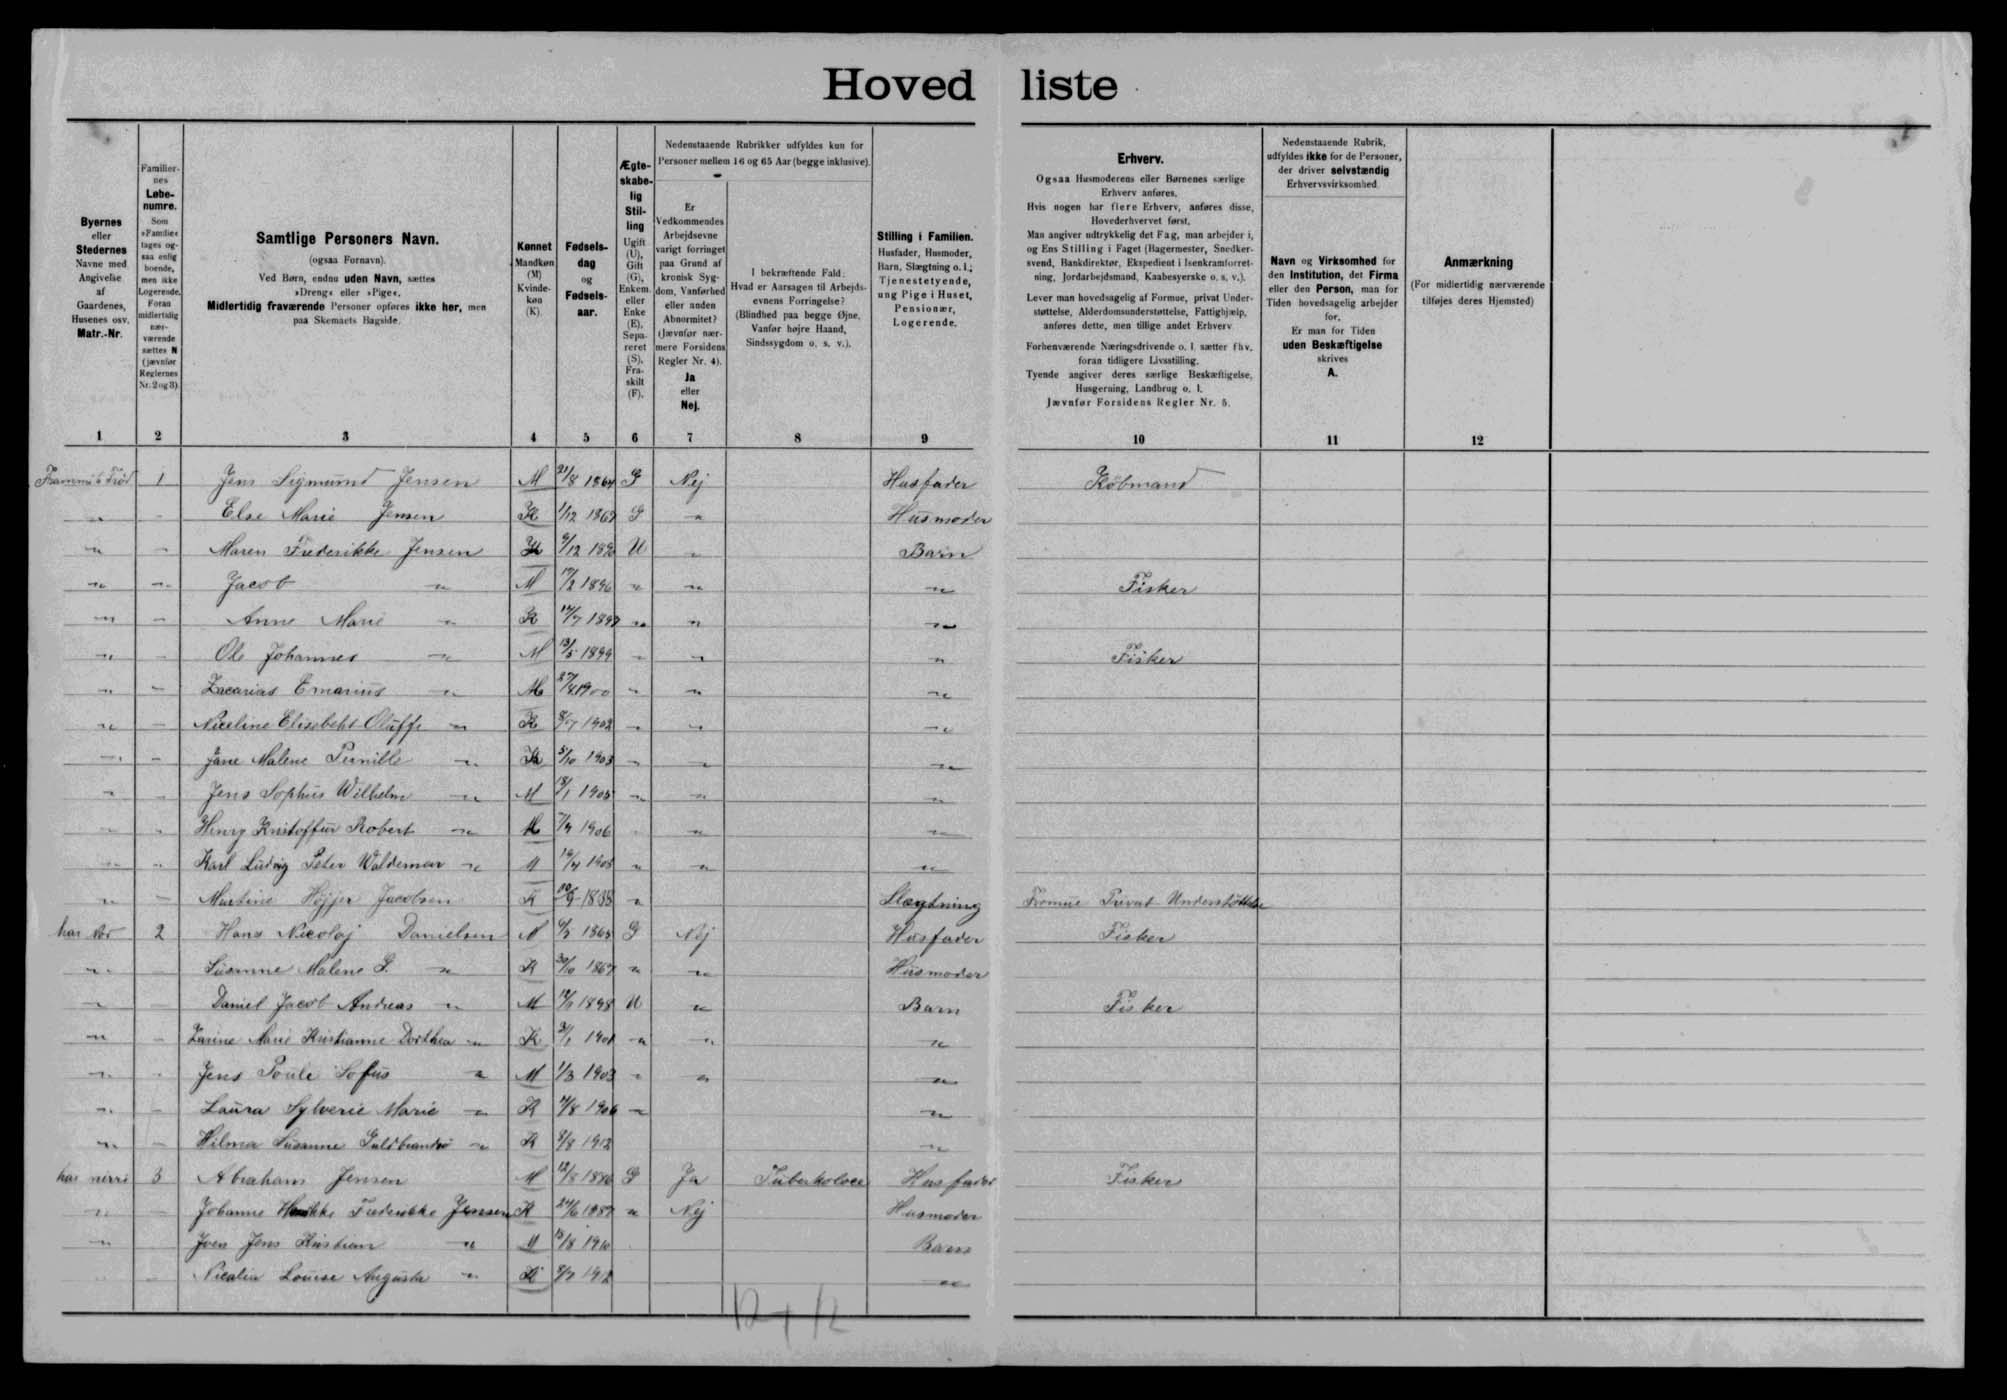 Hoved liste
Byernes eller Stedernes Navne med Angivelse af Gaardenes, Husenes osv. Matr.-Nr.
Familiernes Løbenumre. Som »Familie« tages ogsaa enlig boende, men ikke Logerende. Foran midlertidig nærværende sættes N (jævnfør Reglernes Nr. 2 og 3).
Samtlige Personers Navn. (ogsaa Fornavn). Ved Børn, endnu uden Navn, sættes »Dreng« eller »Pige«. Midlertidig fraværende Personer opføres ikke her, men paa Skemaets Bagside.
Kønnet Mandkøn (M) Kvindekøn (K).
Fødselsdag og Fødselsaar.
Ægteskabelig Stilling Ugift (U), Gift (G), Enkem. eller Enke (E), Separeret (S), Fraskilt (F).
Nedenstaaende Rubrikker udfyldes kun for Personer mellem 16 og 65 Aar (begge inklusive).
Er Vedkommendes Arbejdsevne varigt forringet paa Grund af kronisk Sygdom, Vanførhed eller anden Abnormitet? (Jævnfør nærmere Forsidens Regler Nr. 4). Ja eller Nej.
I bekræftende Fald: Hvad er Aarsagen til Arbejdsevnens Forringelse? (Blindhed paa begge Øjne, Vanfør højre Haand, Sindssygdom o. s. v.).
Stilling i Familien. Husfader, Husmoder, Barn, Slægtning o. l.; Tjenestetyende, ung Pige i Huset, Pensionær, Logerende.
Erhverv.
Ogsaa Husmoderens eller Børnenes særlige Erhverv anføres.
Hvis nogen har flere Erhverv, anføres disse, Hovederhvervet først.
Man angiver udtrykkelig det Fag, man arbejder i, og Ens Stilling i Faget (Bagermester, Snedkersvend, Bankdirektør, Ekspedient i Isenkramforretning, Jordarbejdsmand, Kaabesyerske o. s. v.).
Lever man hovedsagelig af Formue, privat Understøttelse, Alderdomsunderstøttelse, Fattighjælp, anføres dette, men tillige andet Erhverv
Forhenværende Næringsdrivende o. l. sætter fhv. foran tidligere Livsstilling.
Tyende angiver deres særlige Beskæftigelse, Husgerning, Landbrug o. l.
Jævnfør Forsidens Regler Nr. 5.
Nedenstaaende Rubrik, udfyldes ikke for de Personer, der driver selvstændig Erhvervsvirksomhed.
Navn og Virksomhed for den Institution, det Firma eller den Person, man for Tiden hovedsagelig arbejder for.
Er man for Tiden uden Beskæftigelse skrives A.
Anmærkning (For midlertidig nærværende tilføjes deres Hjemsted)
1 2 3 4 5 6 7 8 9 10 11 12
1 Jens Sigmund Jensen M 21/8 1864 G Nej Husfader Købmand
" - Else Marie Jensen K 1/12 1869 G " Husmoder
" - Maren Frederikke Jensen K 9/12 1892 U " Barn
" " Jacob " M 17/2 1896 " " " Fisker
" - Anne Marie " K 14/7 1897 " " "
" - Ole Johannes " M 13/5 1899 " " " Fisker
" - Zacarias Emarius " M 27/4 1900 " " "
" - Niceline Elisebeht Oluffe " K 8/7 1902 " " "
" - Jane Malene Pernille " K 5/10 1903 " " "
" - Jens Sophus Wilhelm " M 18/1 1905 " " "
" " Henry Kristoffur Robert " M 7/4 1906 " " "
" " Karl Ludvig Peter Waldemar " M 16/4 1908 " " "
" - Martine Højjer Jacobsen K 1838 " Slægtning Formue Privat Understøttelse
2 Hans Nicolaj Danielsen M 1865 G Nej Husfader Fisker
" - Susanne Malene " K 30/10 1867 " " Husmoder
" - Daniel Jacob Andreas " M 1898 U " Barn Fisker
" - Marie Kristianne Dorthea " K 1901 " " "
" - Jens Poule Sofus " M 1/3 1903 " " "
" - Laura Sylverie Marie " K 1906 " "
" - Hilma Susanne " K 8/8 1912 "
3 Abraham Jensen M 12/8 G Ja Tuberkolose Husfader Fisker
" - Johanne Frederikke Jensen K 24/6 1887 " Nej Husmoder
" Jens Kristian " M 1910 Barn
- Nicolia Louise Augusta " K 1912 "
12 + 12